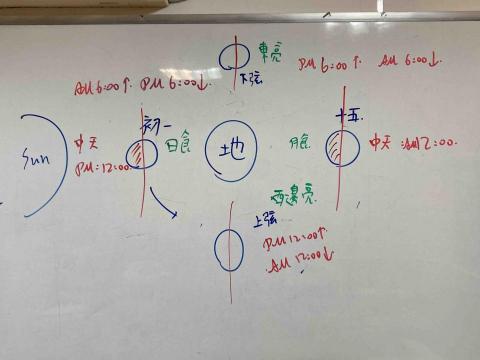 東亮
PM 6:00↑ AM 6:00↓
下弦
AM 6:00↑ PM 6:00↓
初一
十五
Sun
中天
PM:12:00
日食
地
月食
中天:AM12:00
西邊亮
上弦
PM 12:00↑
AM 12:00↓